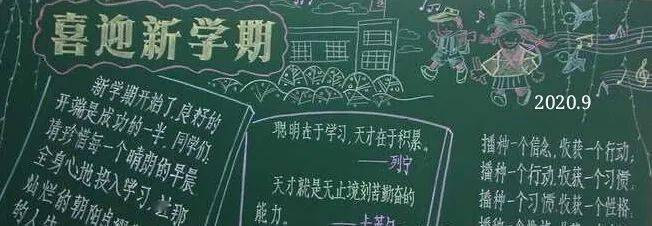 喜迎新学期
2020.9
新学期开始了,良好的
开端是成功的一半,同学们,
请珍惜每一个晴朗的早晨
全身心地投入学习,让那
灿烂的朝阳点
聪明在于学习,天才在于积累。
——列宁
天才就是无止境刻苦勤奋的
能力。
——卡莱尔
播种一个信念,收获一个行动;
播种一个行动,收获一个习惯;
播种一个习惯,收获一个性格;